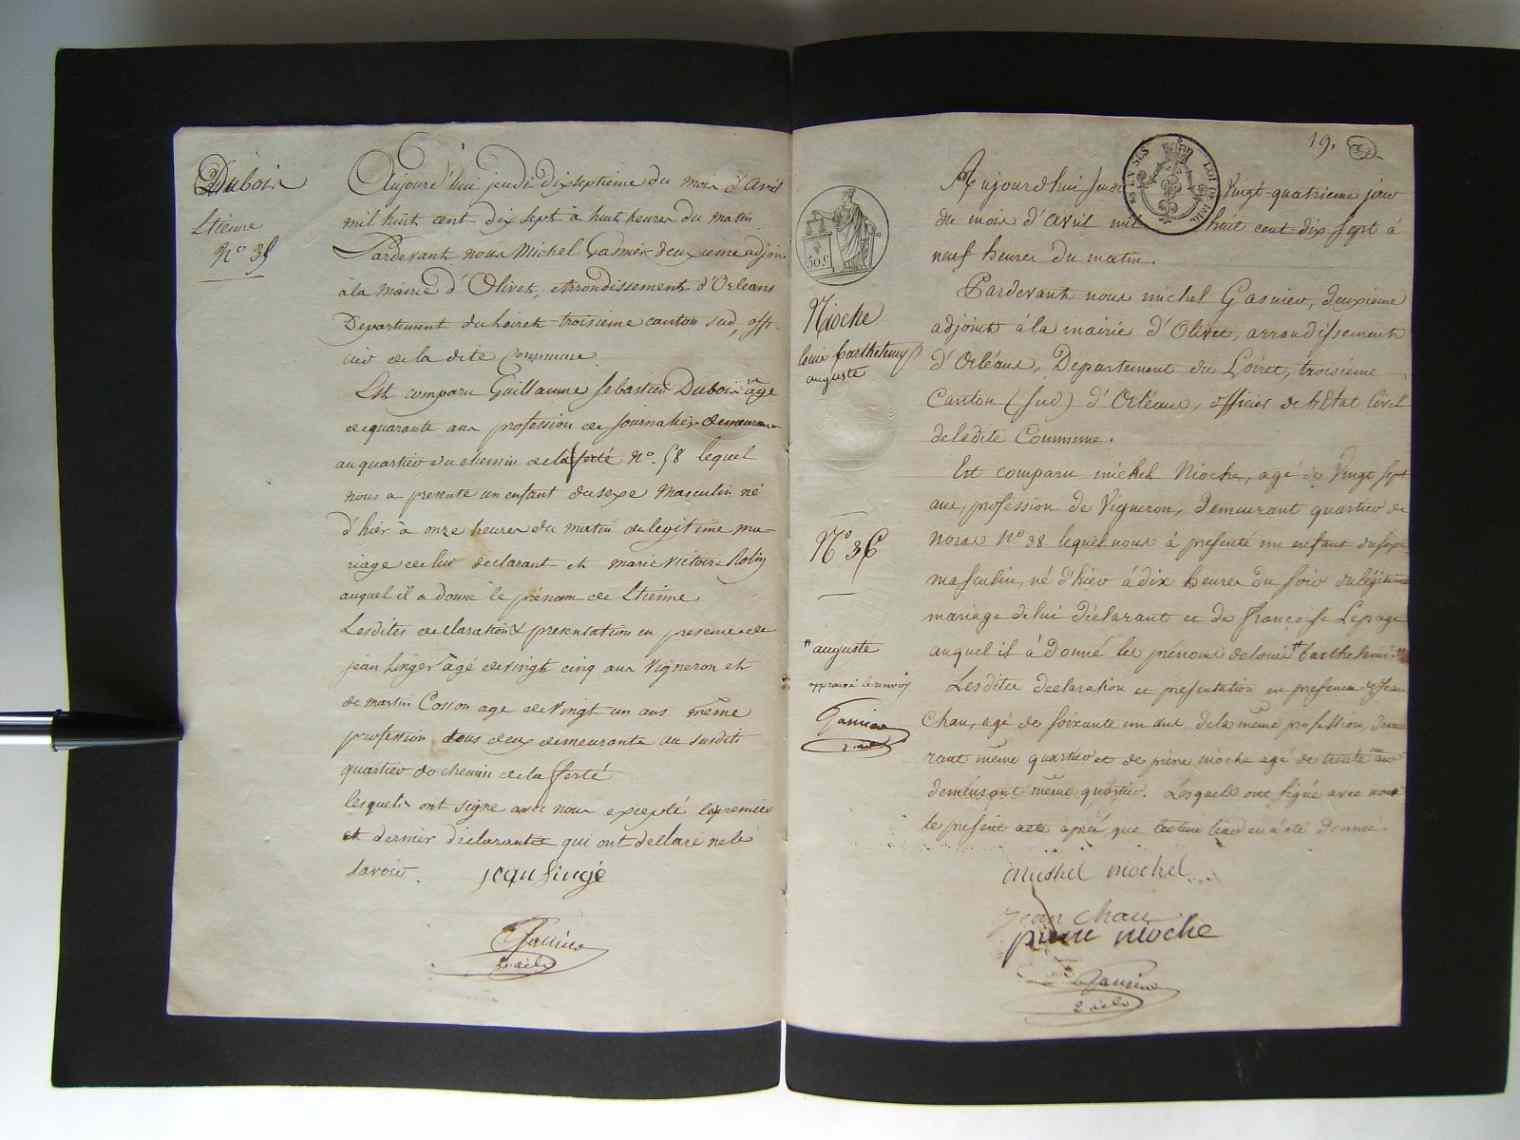 Dubois
Etienne
N.° 35
Aujourd'hui jeudi dixseptieme du mois d'avril
mil huit cent dix sept à huit heures du matin
Pardevant nous Michel Gasnier deuxieme adjoint
à la Mairie d'Olivet, Arrondissement d'Orleans
Departement du Loiret troisieme canton sud, offi-
cier de la dite Commune
Est comparu Guillaume Sebastien Dubois agé
de quarante ans profession de journalier demeurant
au quartier du chemin de la ferté N.° 58 lequel
nous a presenté un enfant du sexe Masculin né
d'hier à onze heures du matin de legitime ma-
riage de lui declarant et marie victoire Robin
auquel il a donné le prénom de Etienne,
Lesdites declaration & presentation en presence de
jean Singer âgé de vingt cinq ans Vigneron et
de martin Cosson age de Vingt un ans même
profession tous deux demeurants au susdit
quartier du chemin de la ferté
lesquels ont signe avec nous excepté le premier
et dernier déclarants qui ont declaré ne le
savoir.
jean singé
Gasnier
19.
LOI DE 1816
50 c
Nioche
louis barthelemy
auguste
N.° 36
auguste
approuvé le renvoy
Gasnier
Aujourd'hui Jeudi Vingt-quatrieme jour
du mois d'avril mil huit cent dix sept à
neuf heures du matin.
Pardevant nous michel Gasnier, deuxieme
adjoint à la mairie d'Olivet, arrondissement
d'Orléans, Departement du Loiret, troisieme
Canton (Sud) d'Orléans, officier de l'Etat Civil
de ladite Commune.
Est comparu michel Nioche, agé de Vingt sept
ans, profession de Vigneron, demeurant quartier de
N.° 38 lequel nous à presenté un enfant du sexe
masculin, né d'hier à dix heures du soir du légitime
mariage de lui déclarant et de Françoise Lepage
auquel il à donné les prénoms de louis barthelemi
Lesdites declaration et presentation en presence de Jean
Chau, agé de soixante un ans, de la même profession, demeu
rant même quartier et de pierre nioche agé de trente ans
demeurant même quartier. Lesquels ont signé avec nous
le présent acte après que lecture leur en a été donnée.
mishel niochel
jean chau
pierre nioche
Gasnier